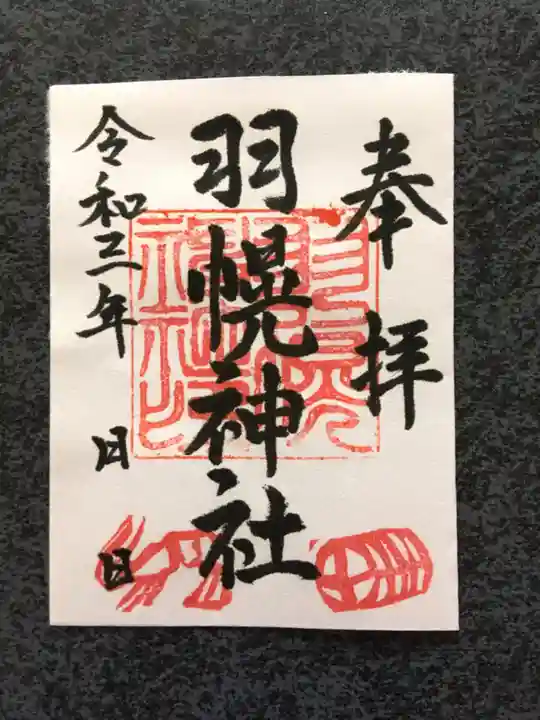 奉拝
羽幌神社
令和三年 月 日